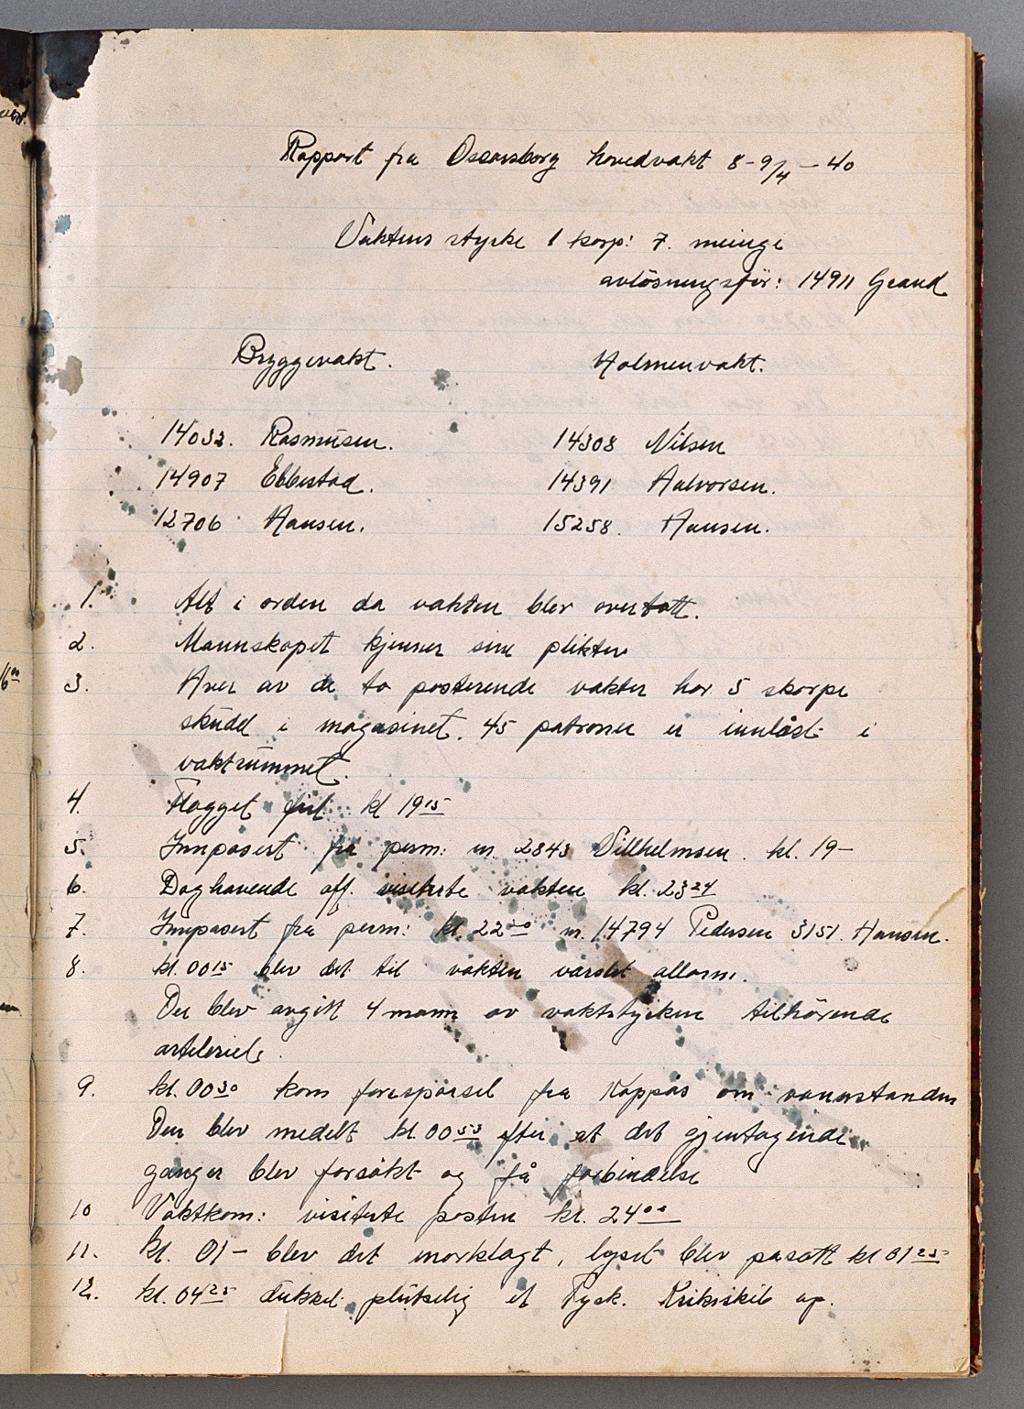 Rapport fra Oscarsborg hovedvakt 8-9/4 - 40
Vaktens stycke 1 korp: 7. meinge
avlösningsför: 14911 Grand
Bryggevakt. Holmenvakt.
14032. Rasmusen. 14308 Nilsen
14907 Ebbestad. 14391 Halvorsen.
12706 Hansen. 15258. Hansen.
1. Alt i orden da vakten blev overtatt.
2. Mannskapet kjenner sine plikter
3. Hver av de to posterende vakter har 5 skarpe
skudd i magasinet. 45 patroner er innlåst i
vaktrummet.
4. Flagget firt kl 19 15
5. Innpasert fra perm: nr. 2843 Villhelmsen. kl. 19-
6. Daghavende off. visiterte vakten kl. 23 24
7. Innpasert fra perm: kl. 22 00 nr. 14794 Pedersen 3151. Hansen.
8. kl. 00 15 blev det til vakten varslet allarm.
Der blev avgitt 4 mann av vaktstycken tilhörende
arteleriet.
9. kl. 00 30 kom forespörsel fra Kopås om vannstanden
Den blev medelt kl 00 55 efter at det gjentagende
ganger blev forsökt og få forbindelse
10 Vaktkom: visiterte posten kl. 24 00
11. kl. 01- blev det mörklagt, lyset blev pasatt kl 01 25
12. kl. 04 25 dukket plutselig et Tysk. Kriksskib op.